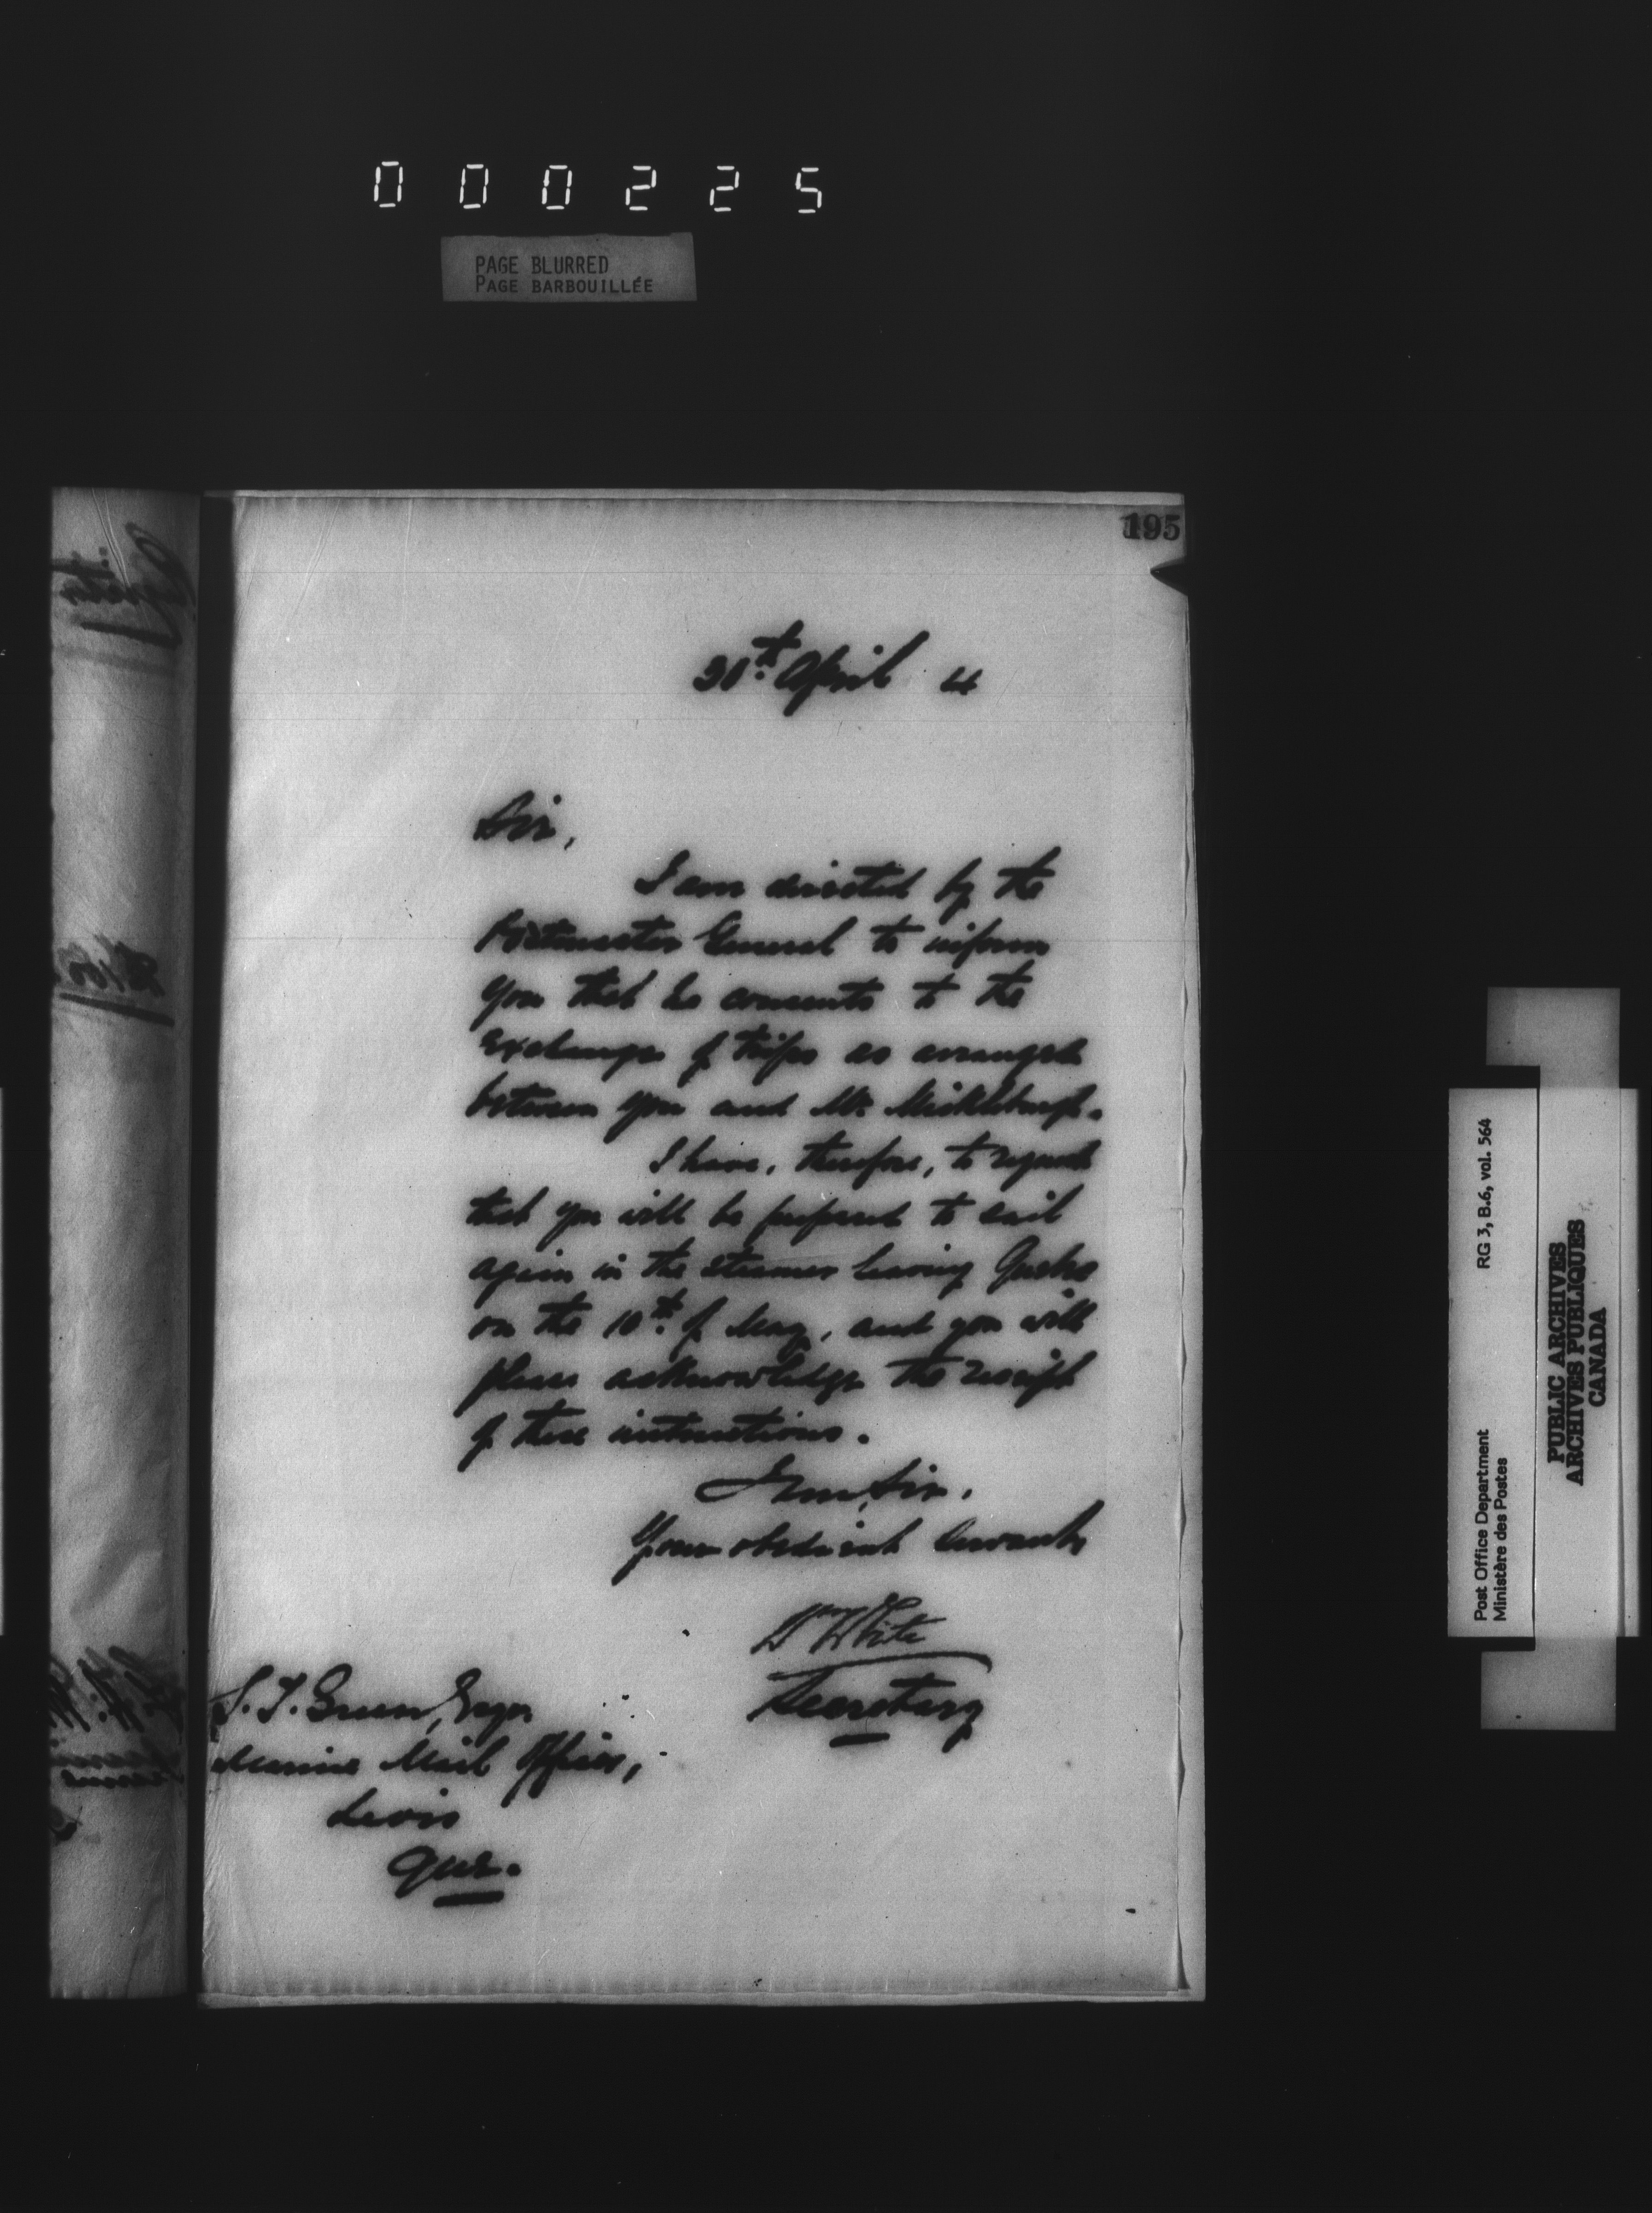 000225
PAGE BLURRED
PAGE BARBOUILLÉE
195
30th. April 4
Sir,
I am directed by the
Postmaster General to inform
you that he consents to the
exchange of trips as arranged
between you and Mr. Mickleburgh.
I have, therefore, to request
that you will be prepared to sail
again in the steamer leaving Quebec
on the 10th. of May, and you will
please acknowledge the receipt
of these instructions.
I am, Sir,
Your obedient Servant,
Wm White
Secretary
S. T. Green, Esqre
Marine Mail Officer,
Levis
Que.
Post Office Department RG 3, B.6, vol. 564
Ministère des Postes
PUBLIC ARCHIVES
ARCHIVES PUBLIQUES
CANADA